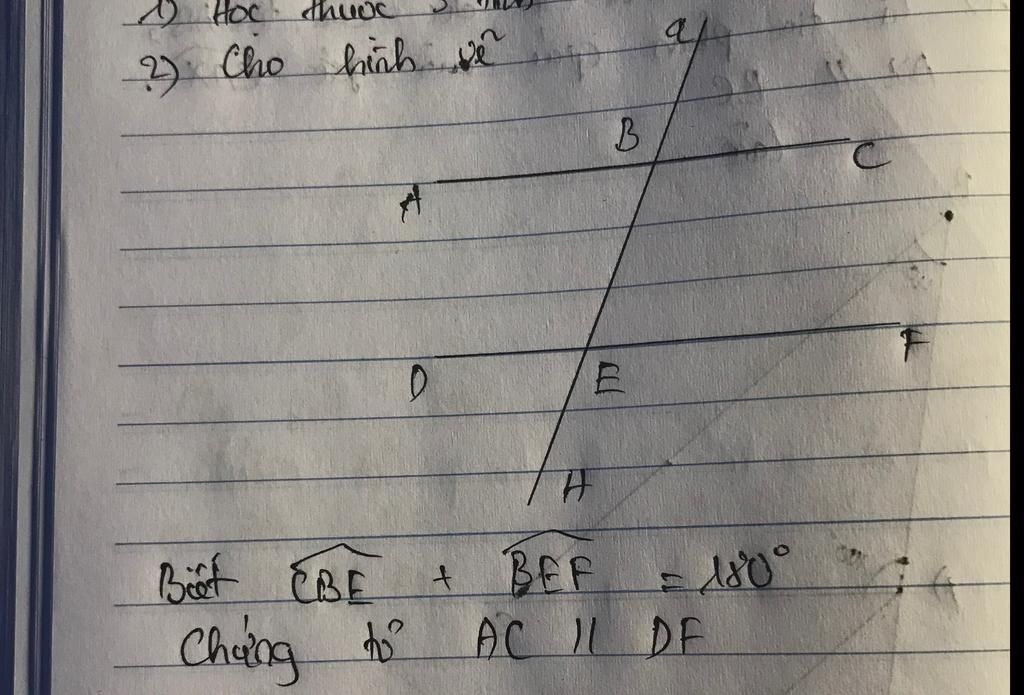 1) Học thuộc 3
2) Cho hình vẽ
a
B
C
A
D
E
F
H
Biết CBE + BEF = 180°
Chứng tỏ AC // DF